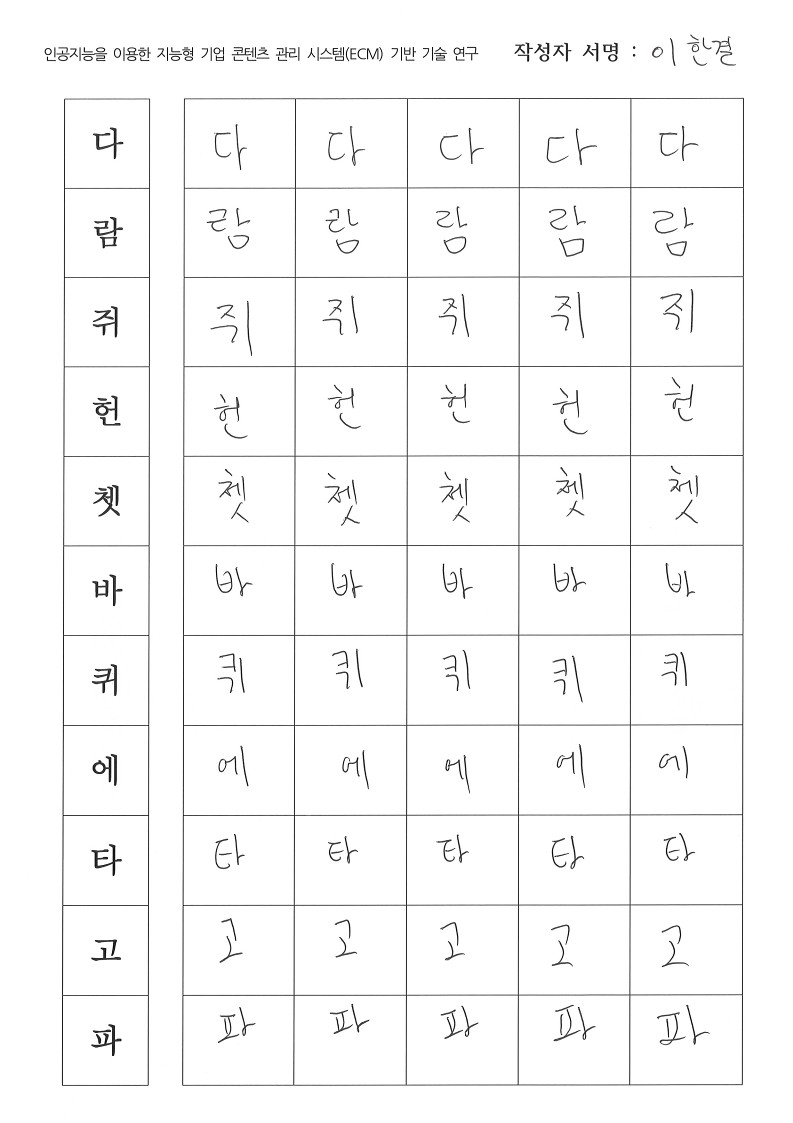 인공지능을 이용한 지능형 기업 콘텐츠 관리 시스템(ECM) 기반 기술 연구 작성자 서명 : 이한결
다 다 다 다 다 다
람 람 람 람 람 람
쥐 쥐 쥐 쥐 쥐 쥐
헌 헌 헌 헌 헌 헌
쳇 쳇 쳇 쳇 쳇 쳇
바 바 바 바 바 바
퀴 퀴 퀴 퀴 퀴 퀴
에 에 에 에 에 에
타 타 타 타 타 타
고 고 고 고 고 고
파 파 파 파 파 파